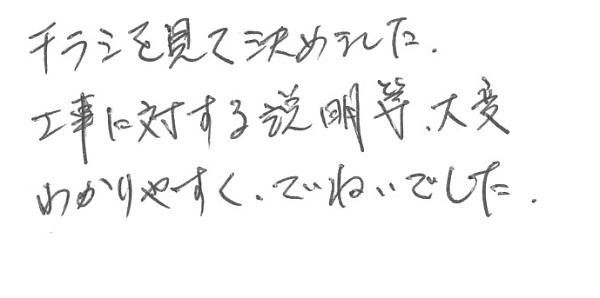 チラシを見て決めました.
工事に対する説明等、大変
わかりやすく、ていねいでした.